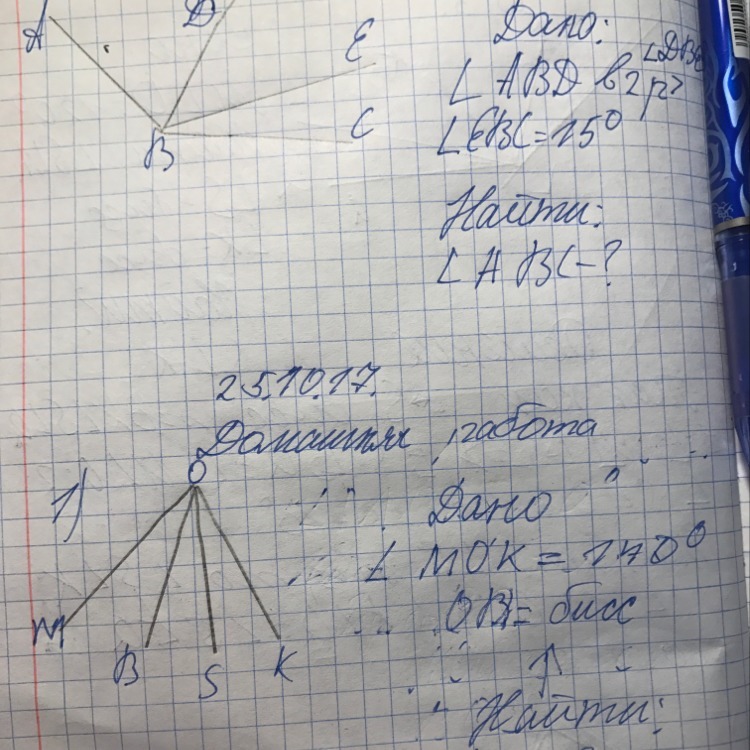 A
D
E
B
C
Дано:
∠ABD в 2 р>
∠DBE
∠EBC=15°
Найти:
∠ABC-?
25.10.17.
Домашняя работа
1)
O
M
B
S
K
Дано
∠MOK=170°
OB=бисс
Найти: